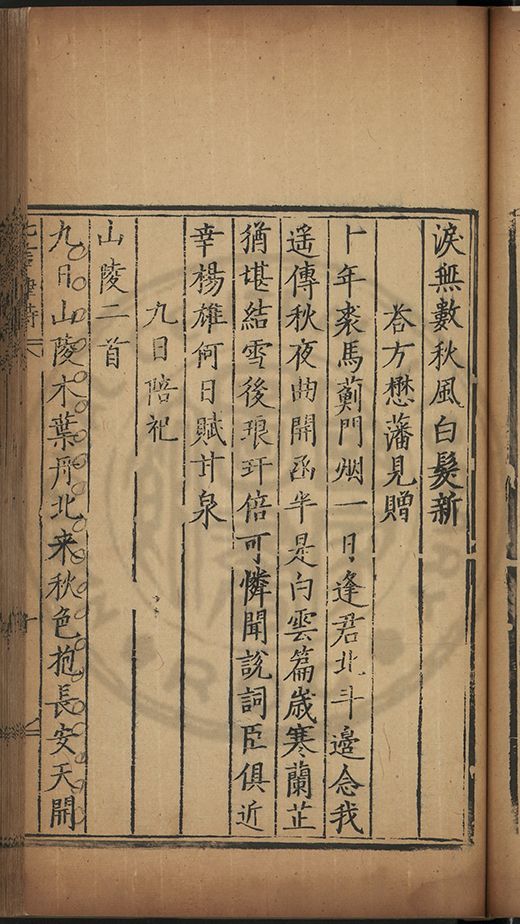 淚無數秋風白髮新
荅方懋藩見贈
十年裘馬薊門烟一日逢君北斗邊念我
遥傳秋夜曲開函半是白雲篇歲寒蘭芷
猶堪結雪後琅玕倍可憐聞說詞臣俱近
幸楊雄何日賦甘泉
九日陪祀
山陵二首
九日山陵木葉丹北来秋色抱長安天開